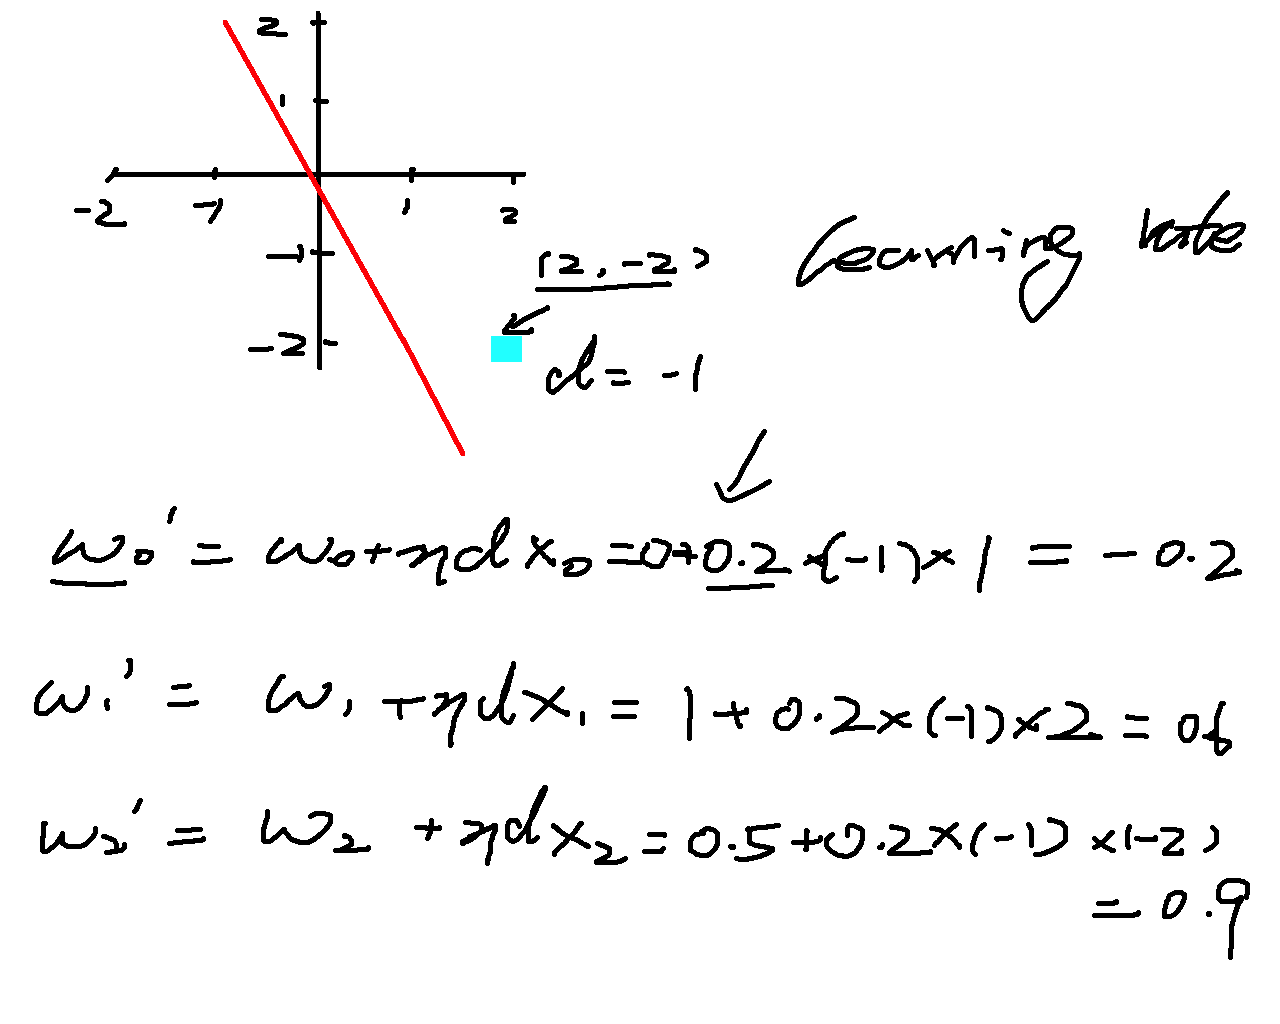 2
1
-2 -1 1 2
-1
(2, -2) learning rate
-2
d = -1
w₀' = w₀ + ηdx₀ = 0+0.2×(-1)×1 = -0.2
w₁' = w₁ + ηdx₁ = 1+0.2×(-1)×2 = 0.6
w₂' = w₂ + ηdx₂ = 0.5+0.2×(-1)×(-2)
= 0.9